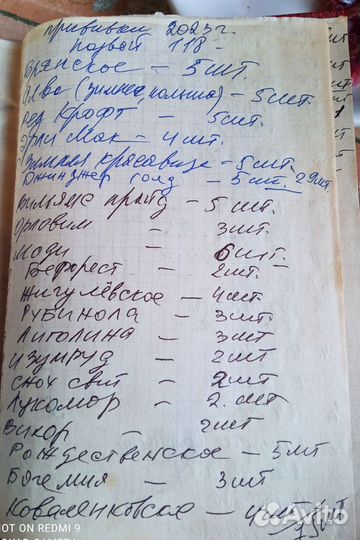 прививки 2023г.
подвой 118 -
Брянское - 5шт.
Алва (зимнее, польша) - 5шт.
Ред Крофт - 5шт.
Эрли Мак - 4шт.
Зимняя красавица - 5шт.
Джинджер голд - 5шт. 29шт
Вильямс прайд - 5шт
Орловим - 3шт.
Моди - 6шт.
Бефорест - 2шт.
Жигулёвское - 4шт.
Рубинола - 3шт.
Лиголина - 3шт
Изумруд - 2шт
Сноу - 2шт
Лукомор - 2.шт
Вихор - 2шт
Рождественское - 5шт
Богемия - 3шт
Коваленковское - 4шт
SHOT ON REDMI 9
Avito